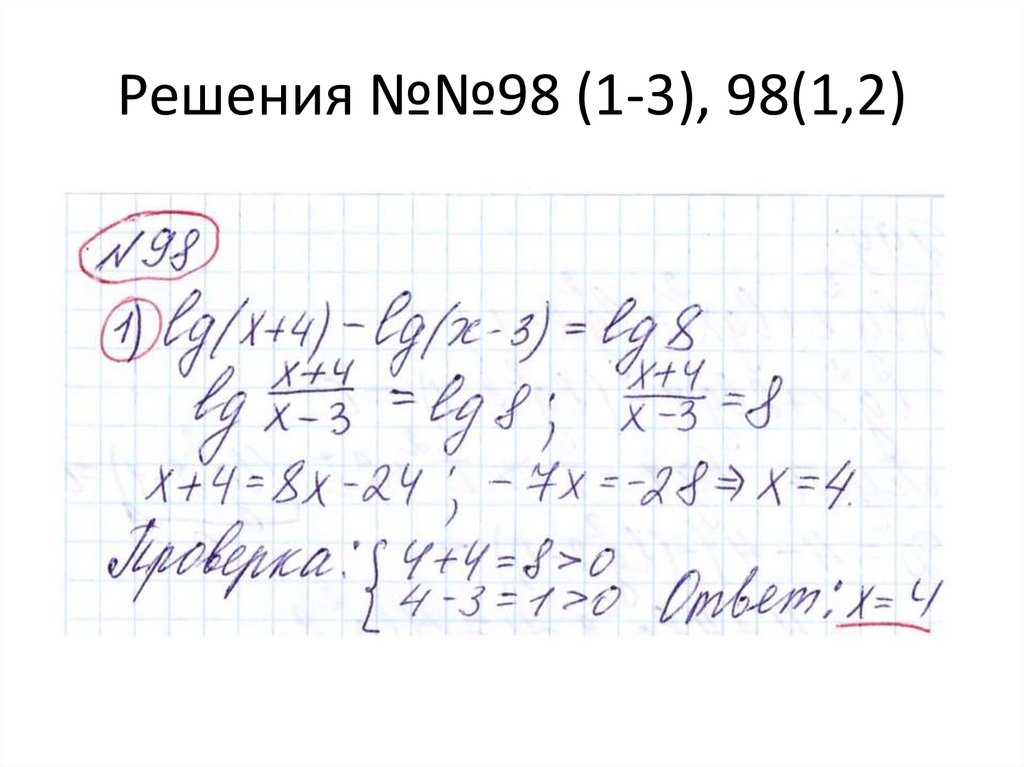 Решения №№98 (1-3), 98(1,2)
№98
1) lg(x+4) - lg(x-3) = lg 8
lg (x+4)/(x-3) = lg 8 ; (x+4)/(x-3) = 8
x+4=8x-24 ; -7x=-28 ⇒ x=4.
Проверка: { 4+4=8>0
4-3=1>0 Ответ: x=4